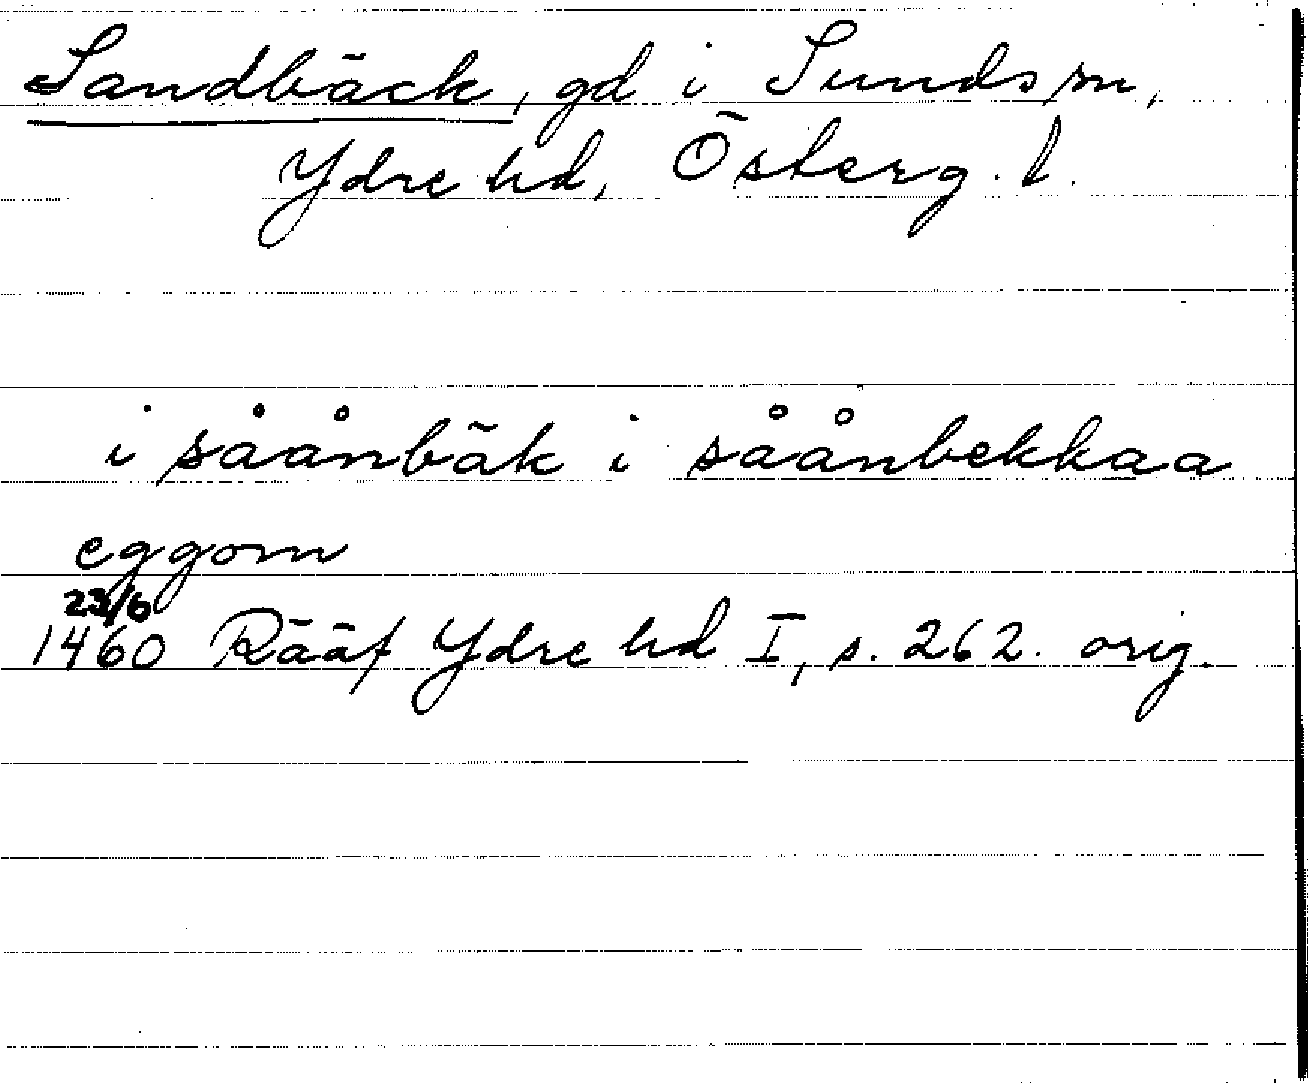 Sandbäck, gd i Sunds sn,
Ydre hd, Österg. l.
i såånbäk i såånbekkaa
eggom
23/6
1460 Rääf Ydre hd I, s. 262. orig.